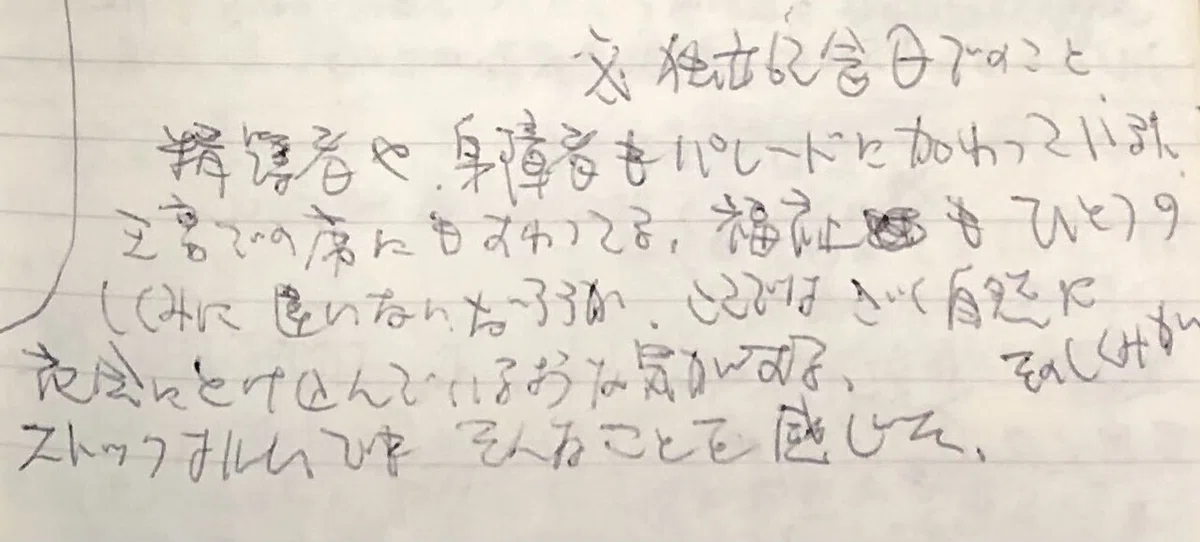 独立記念日でのこと
精障者や、身障者もパレードに加わっていた
での席にもすわってる、福祉もひとつの
しくみに違いないだろうが、ここではごく自然に
そのしくみが
社会にとけ込んでいるような気がする、
ストックホルムでもそんなことを感じた、